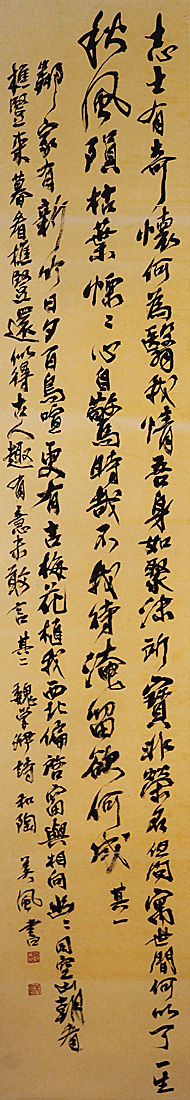 志士有奇懷何為翳我情吾身如聚沫所寶非榮名但問寓世間何以了一生
秋風隕枯葉慄〻心自驚時哉不我待淹留欲何成 其一
鄰家有新竹日夕百鳥喧更有古梅花植我西北偏啓窗與相向幽〻同空山朝看
樵豎來暮看樵豎還似得古人趣有意未敢言 其二 魏学洢詩 和陶 美風書